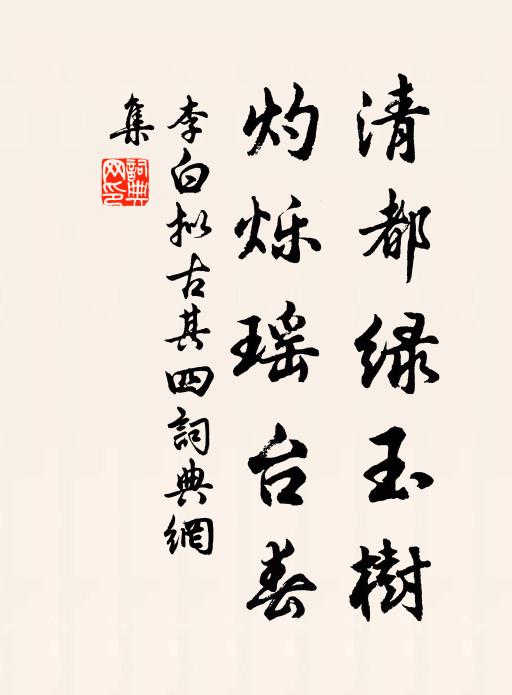 清都绿玉樹
灼烁瑶台春
李白拟古其四詞典網
集
詞典
网印